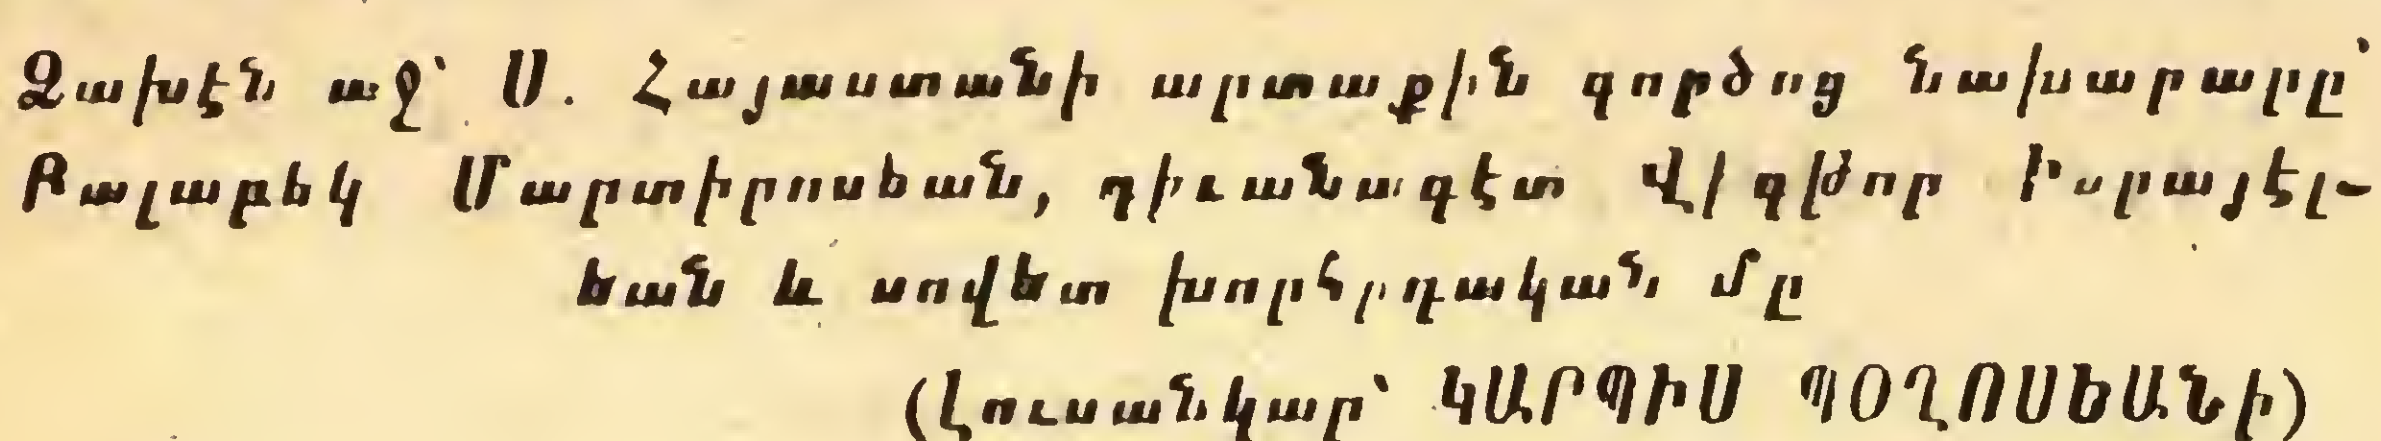 Ձախէն աջ՝ Ս. Հայաստանի արտաքին գործոց նախարարը՝
Բալաբեկ Մարտիրոսեան, դիւանագէտ Վիգթոր Իսրայէլ-
եան և սովետ խորհրդական մը
(Լուսանկար՝ ԿԱՐՊԻՍ ՊՕՂՈՍԵԱՆի)